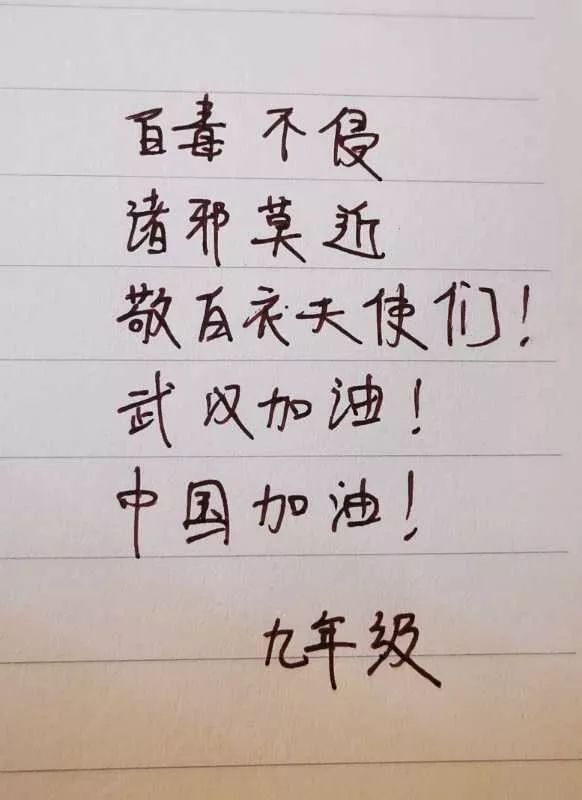 百毒不侵
诸邪莫近
敬白衣天使们！
武汉加油！
中国加油！
九年级